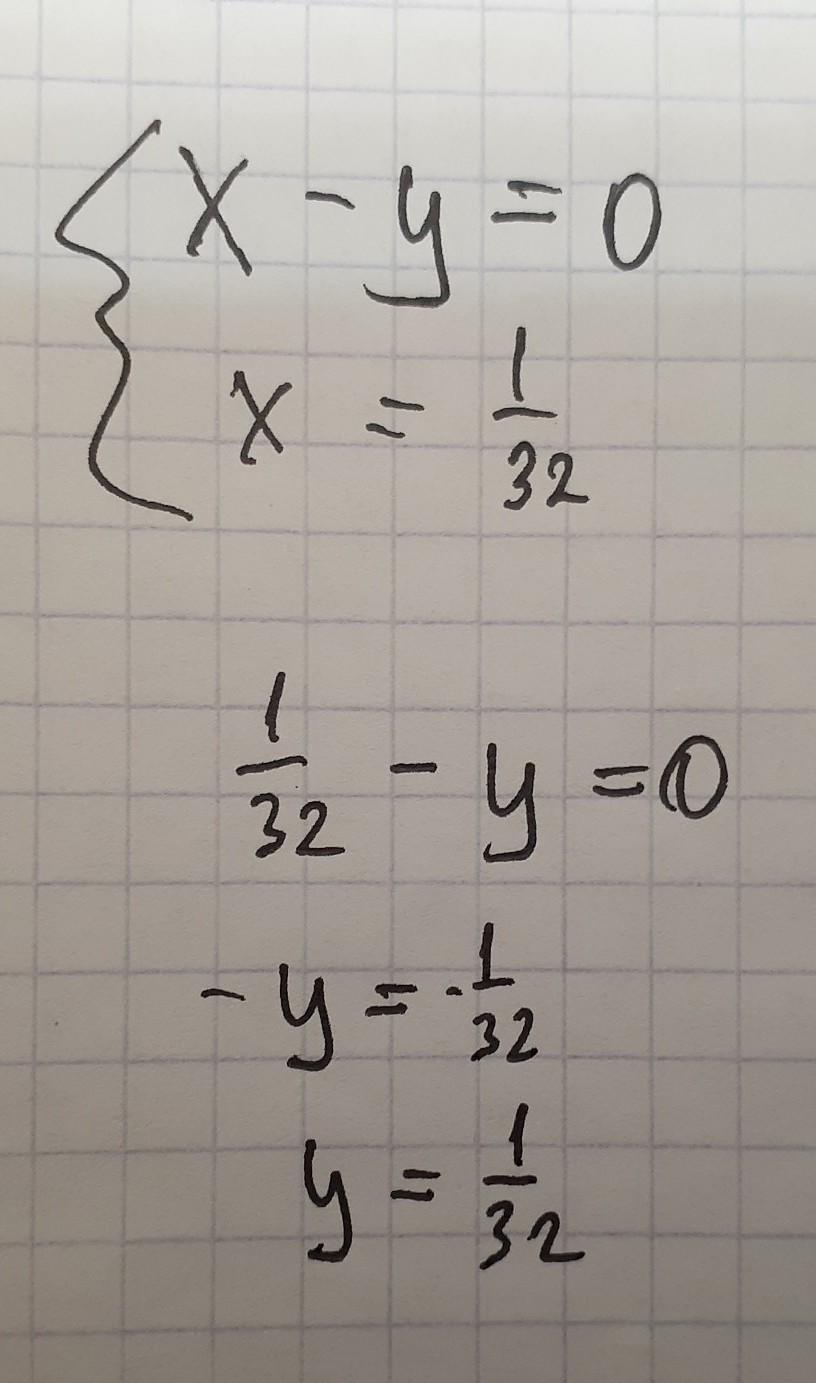 x - y = 0
x = 1/32
1/32 - y = 0
-y = -1/32
y = 1/32